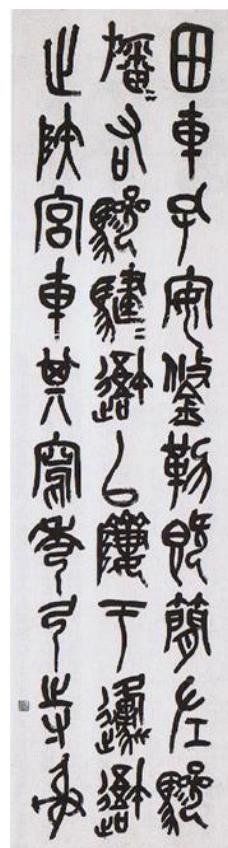 田車孔安鋚勒既簡左驂
旛〻右驂騝〻䢩以隮于邍䢩
止陝宮車其寫秀弓寺射